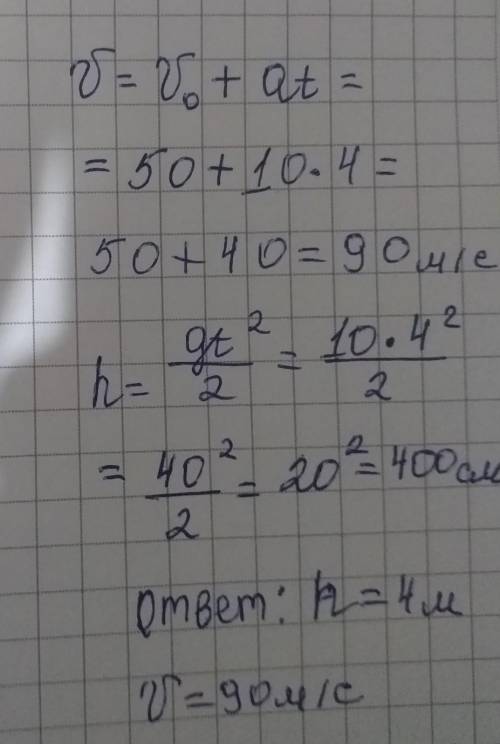 v = v₀ + at =
= 50 + 10 · 4 =
50 + 40 = 90 м/с
h = gt²/2 = 10 · 4²/2
= 40²/2 = 20² = 400 см
Ответ: h = 4 м
v = 90 м/с